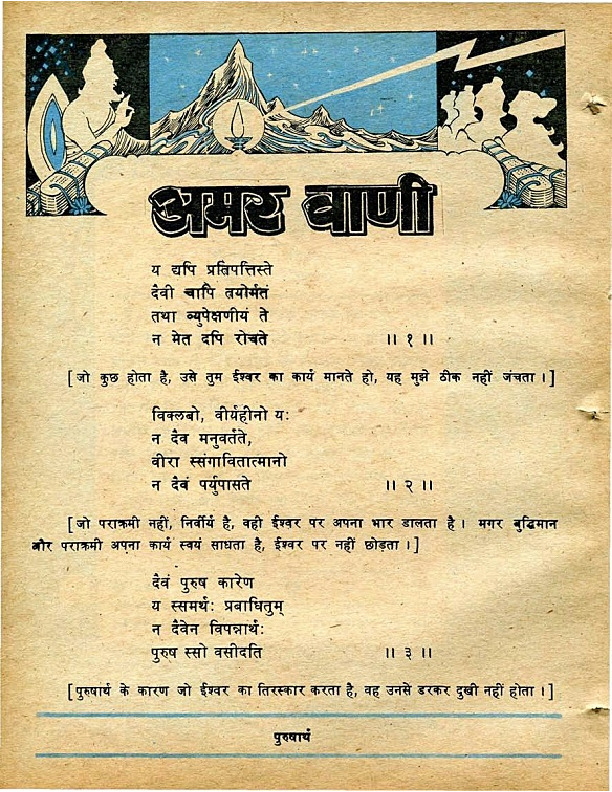 अमर वाणी
य द्यपि प्रतिपत्तिस्ते
दैवी चापि तयोर्मतं
तथा व्युपेक्षणीयं ते
न मेत दपि रोचते ॥ १ ॥
[जो कुछ होता है, उसे तुम ईश्वर का कार्य मानते हो, यह मुझे ठीक नहीं जंचता।]
विक्लबो, वीर्यहीनो यः
न दैव मनुवर्तते,
वीरा स्संगावितात्मानो
न दैवं पर्युपासते ॥ २ ॥
[जो पराक्रमी नहीं, निर्वीर्य है, वही ईश्वर पर अपना भार डालता है। मगर बुद्धिमान
और पराक्रमी अपना कार्य स्वयं साधता है, ईश्वर पर नहीं छोड़ता।]
दैवं पुरुष कारेण
य स्समर्थः प्रबाधितुम्
न दैवेन विपन्नार्थः
पुरुष स्सो वसीदति ॥ ३ ॥
[पुरुषार्थ के कारण जो ईश्वर का तिरस्कार करता है, वह उनसे डरकर दुखी नहीं होता।]
पुरुषार्थ